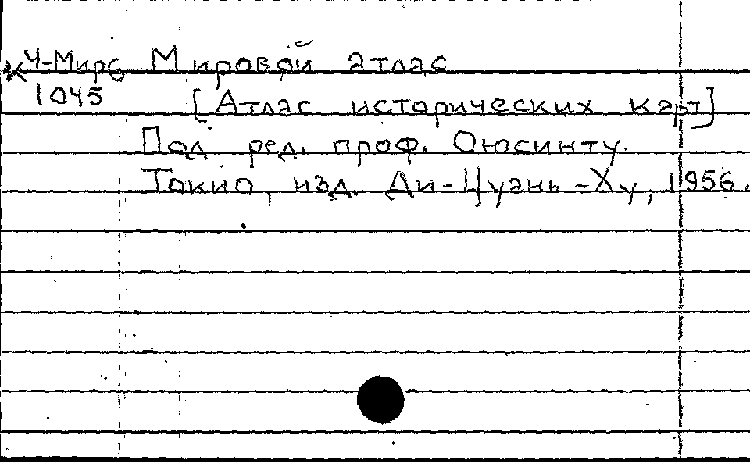 К Ч-Миро Мировой атлас
1045 [Атлас исторических карт]
Под ред. проф. Оюсинту.
Токио, изд. Ди-Цуань-Ху, 1956.